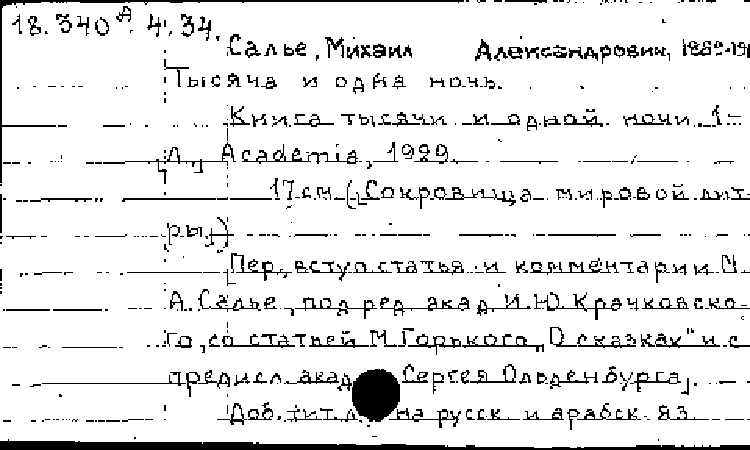 18. 340 А. 4. 34.
Салье, Михаил Александрович,
Тысяча и одна ночь.
Книга тысячи и одной ночи 1-
Л., Academia, 1929.
17 см. („Сокровища мировой лит-
ры„)
Пер., вступ. статья и комментарии М.
А. Салье, под ред. акад. И. Ю. Крачковско-
го, со статьей М. Горького „О сказках" и с
предисл. акад. Сергея Ольденбурга].
Доб. тит. л. на русск. и арабск. яз.